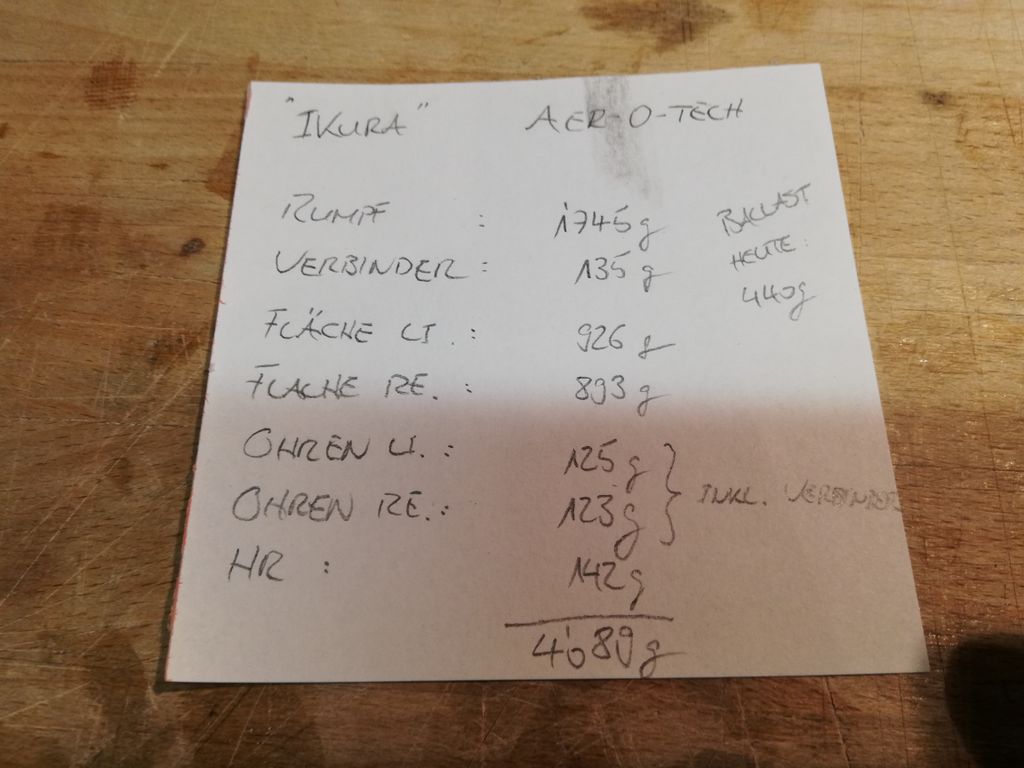 "IKURA" AER-O-TECH
RUMPF : 1'745g
VERBINDER : 135g
FLÄCHE LI. : 926g
FLÄCHE RE. : 893g
OHREN LI. : 125g
OHREN RE. : 123g
HR : 142g
4'089g
BALLAST
HEUTE:
440g
INKL. VERBINDER